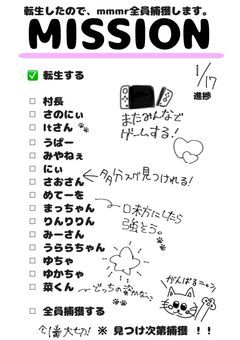 転生したので、mmmr全員捕獲します。
MISSION
転生する
1/17
進捗
村長
さのにぃ
Itさん
うぱー
みやねぇ
にぃ
さおさん
めてーを
まっちゃん
りんりりん
みーさん
うららちゃん
ゆちゃ
ゆかちゃ
菜くん
全員捕獲する
またみんなで
ゲームする!
多分スグ見つけれる!
口味方にしたら
強そう。
どっちの姿かな〜
がんばるニャン
1番大切! ※ 見つけ次第捕獲 !!